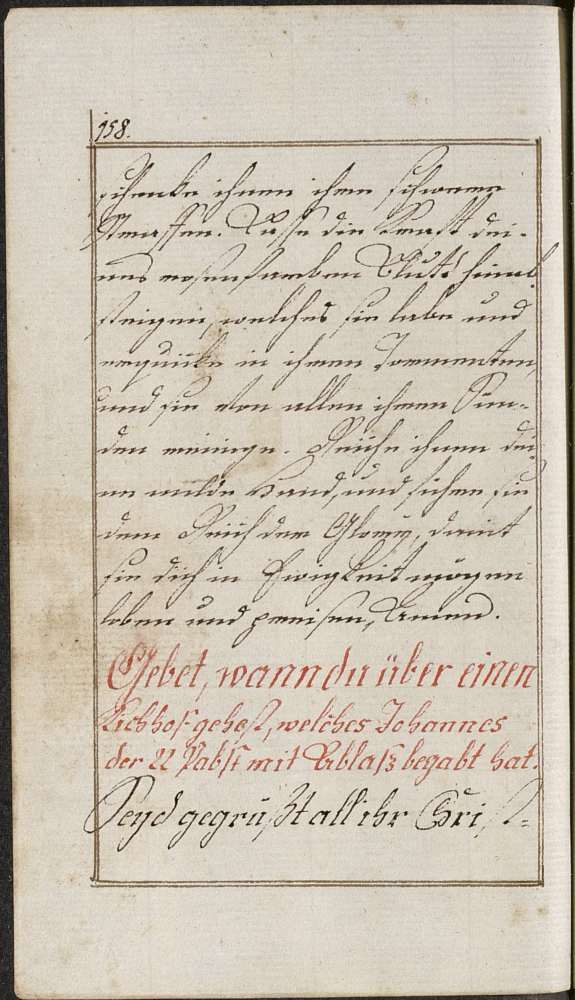 158.
schenke ihnen ihre schwere
Straffen. Lasse die Krafft dei-
nes rosenfarben Bluts hinab
steigen, welches sie labe und
erquicke in ihren Tormenten,
und sie von allen ihren Sün-
den reinige. Reiche ihnen dei-
ne milde Hand, und führe sie
dem Reich der Glorie, damit
sie dich in Ewigkeit mögen
loben und preisen, Amen.
Gebet, wann du über einen
Kichhof gehest, welches Johannes
der 22 Pabst mit Ablass begabt hat.
Seyd gegrüßt all ihr Christ-